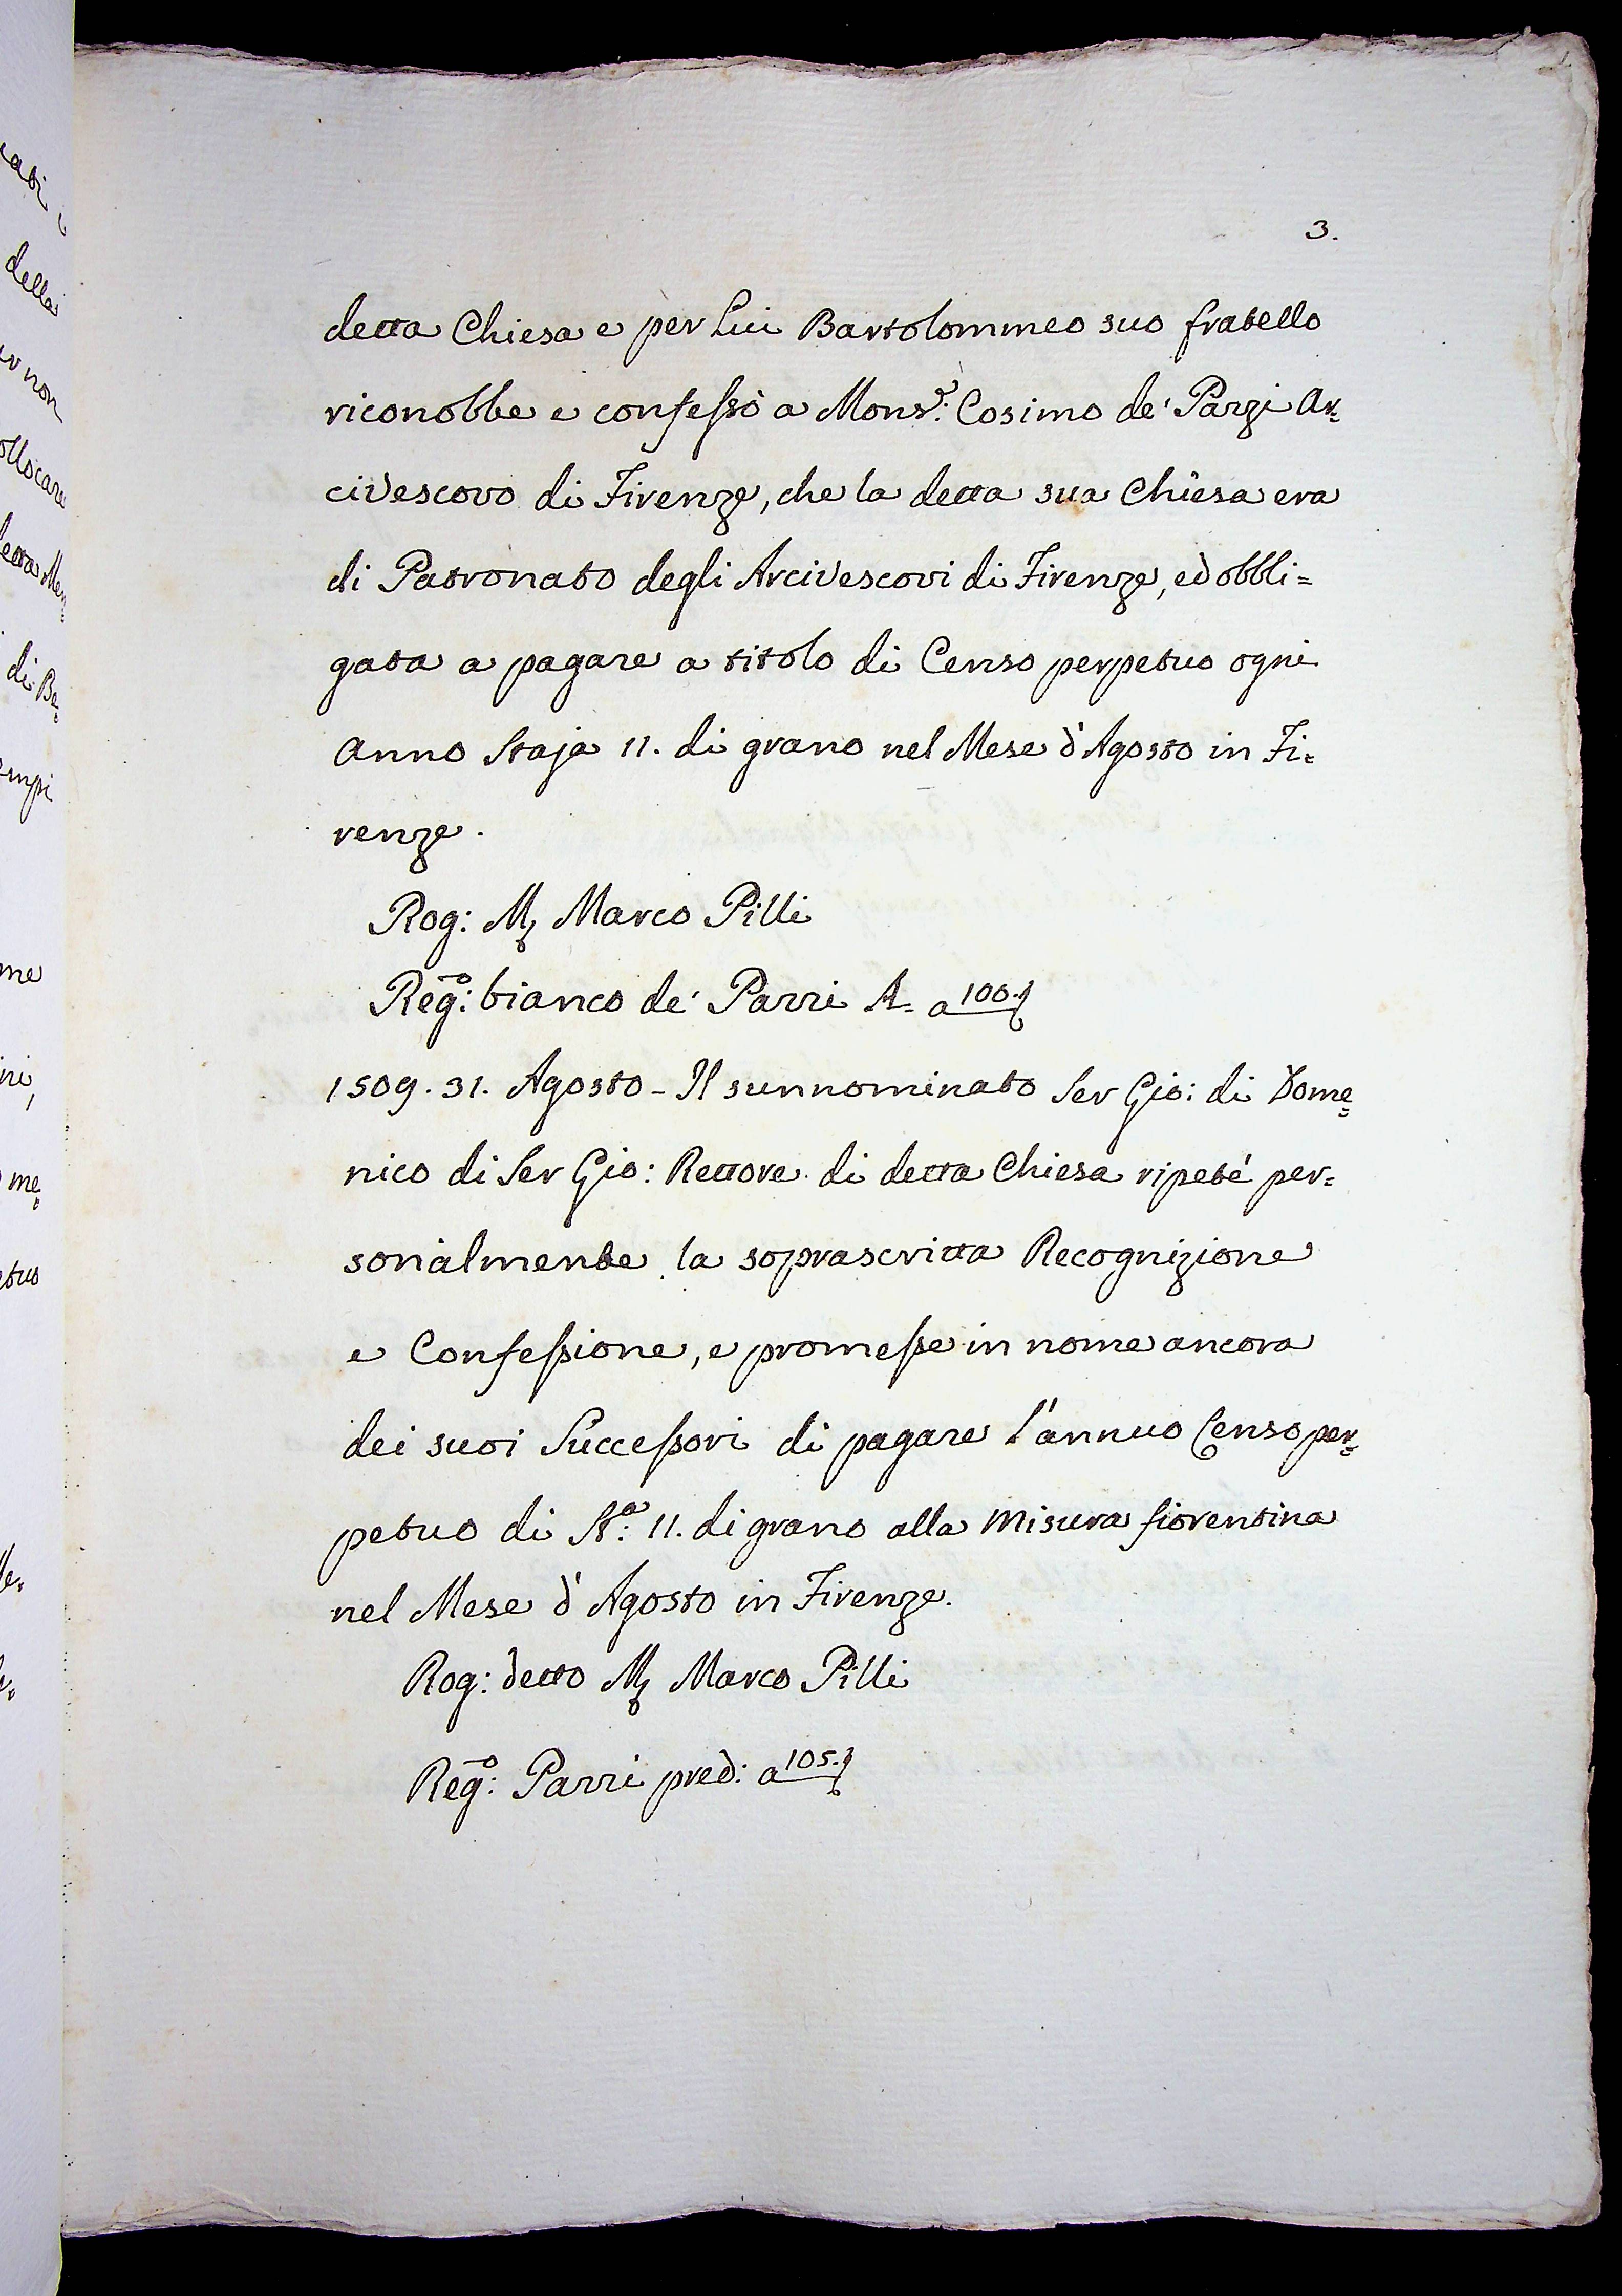 3.
detta Chiesa e per Lui Bartolommeo suo fratello
riconobbe e confessò a Monsr: Cosimo de' Pazzi Ar=
civescovo di Firenze, che la detta sua Chiesa era
di Patronato degli Arcivescovi di Firenze, ed obbli=
gata a pagare a titolo di Censo perpetuo ogni
Anno Staja 11. di grano nel Mese d'Agosto in Fi=
renze.
Rog: M. Marco Pilli
Rego: bianco de' Parri A. a 100.
1509. 31. Agosto - Il sunnominato Ser Gio: di Dome=
nico di Ser Gio: Rettore di detta Chiesa ripeté per=
sonalmente la soprascritta Recognizione
e Confessione, e promesse in nome ancora
dei suoi Successori di pagare l'annuo Censo per=
petuo di Sta: 11. di grano alla Misura fiorentina
nel Mese d'Agosto in Firenze.
Rog: detto M. Marco Pilli
Rego: Parri pred: a 105.
della
non
ollocare
di Be=
me
me=